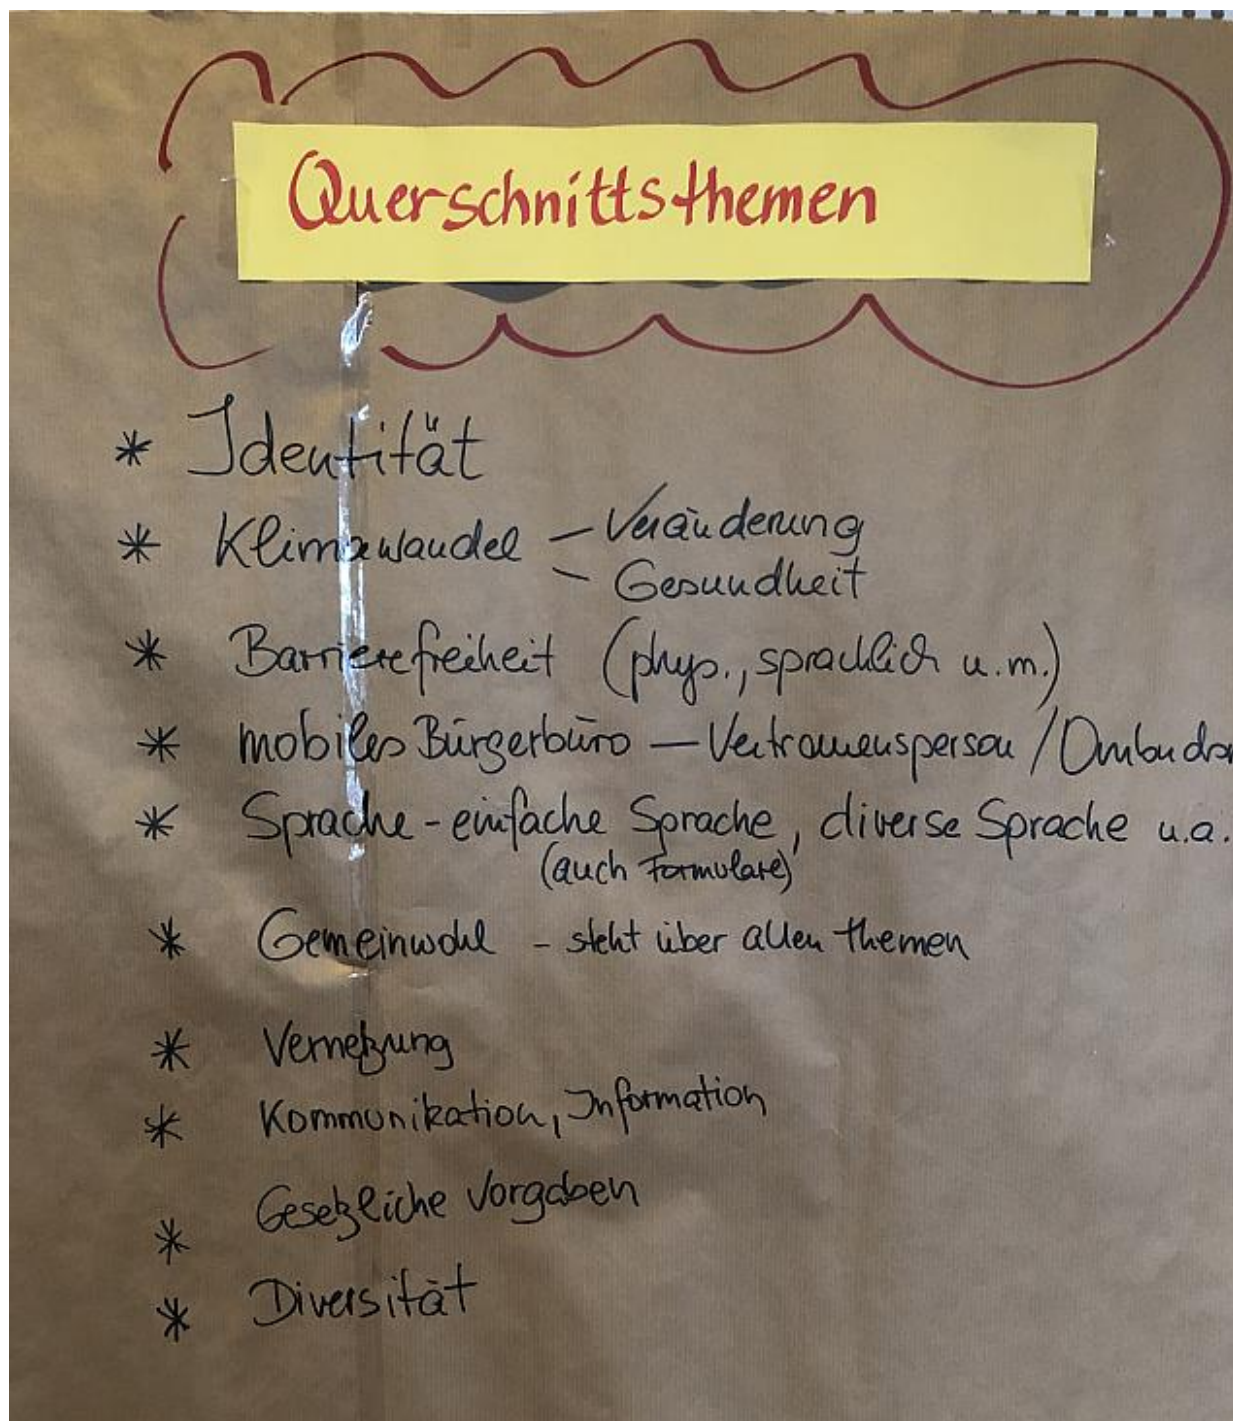 Querschnittsthemen
* Identität
* Klimawandel – Veränderung
– Gesundheit
* Barrierefreiheit (phys., sprachlich u.m.)
* mobiles Bürgerbüro — Vertrauensperson / Ombuds
* Sprache - einfache Sprache, diverse Sprache u.a.
(auch Formulare)
* Gemeinwohl - steht über allen Themen
* Vernetzung
* Kommunikation, Information
* Gesetzliche Vorgaben
* Diversität